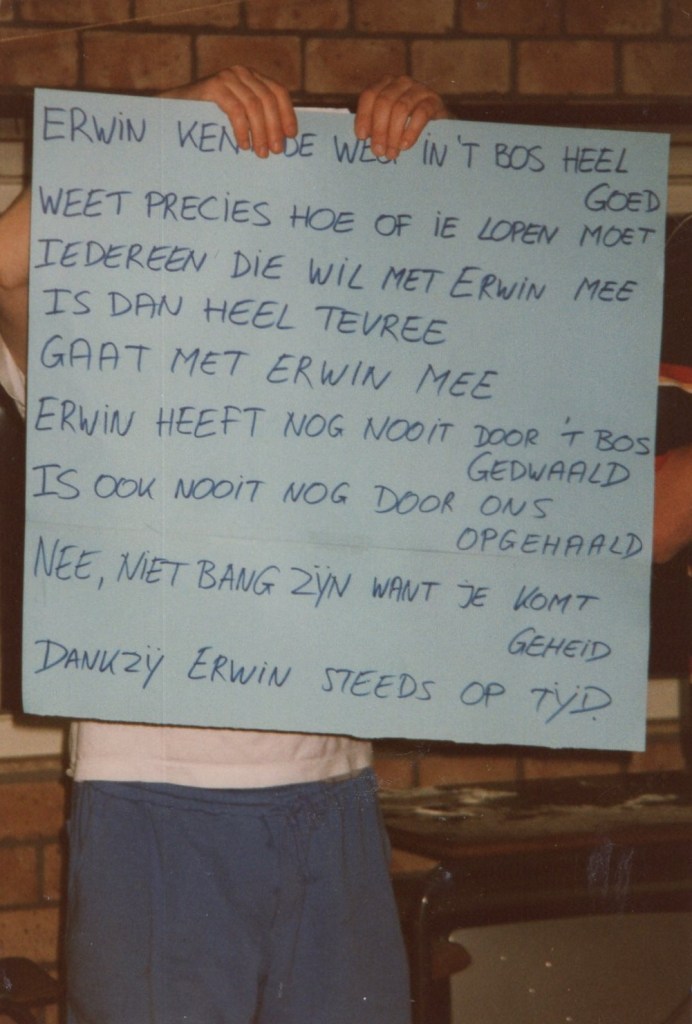 ERWIN KEN DE WEG IN 'T BOS HEEL
GOED
WEET PRECIES HOE OF IE LOPEN MOET
IEDEREEN DIE WIL MET ERWIN MEE
IS DAN HEEL TEVREE
GAAT MET ERWIN MEE
ERWIN HEEFT NOG NOOIT DOOR 'T BOS
GEDWAALD
IS OOK NOOIT NOG DOOR ONS
OPGEHAALD
NEE, NIET BANG ZIJN WANT JE KOMT
GEHEID
DANKZIJ ERWIN STEEDS OP TIJD.